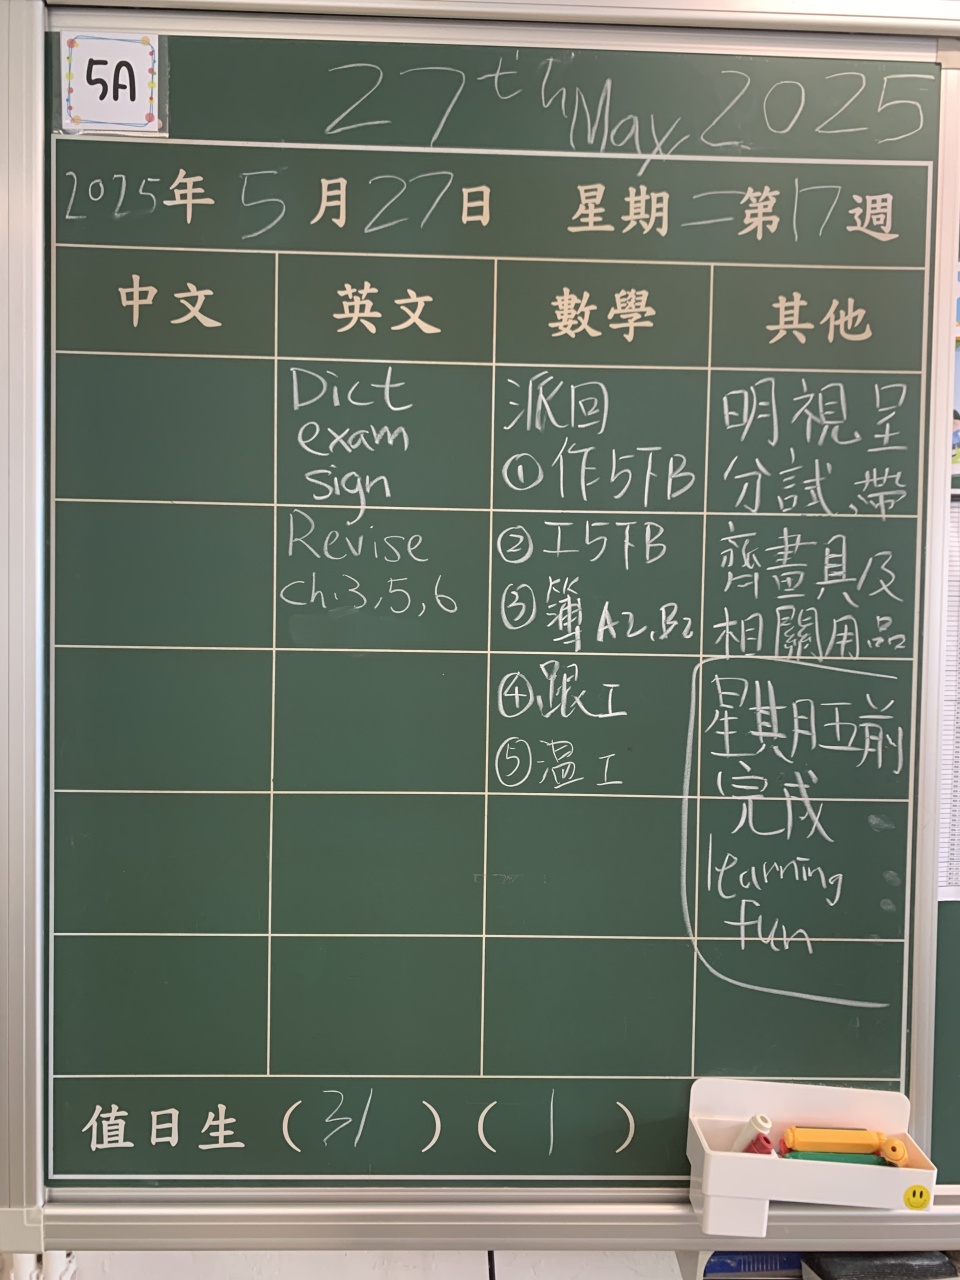 5A
27th May 2025
2025年5月27日 星期二第17週
中文
英文
數學
其他
Dict
exam
sign
Revise
Ch.3,5,6
派回
①作5下B
②工5下B
③簿A2,B2
④跟工
⑤温工
明視呈
分試,帶
齊畫具及
相關用品
星期五前
完成
learning
fun
值日生(31)(1)